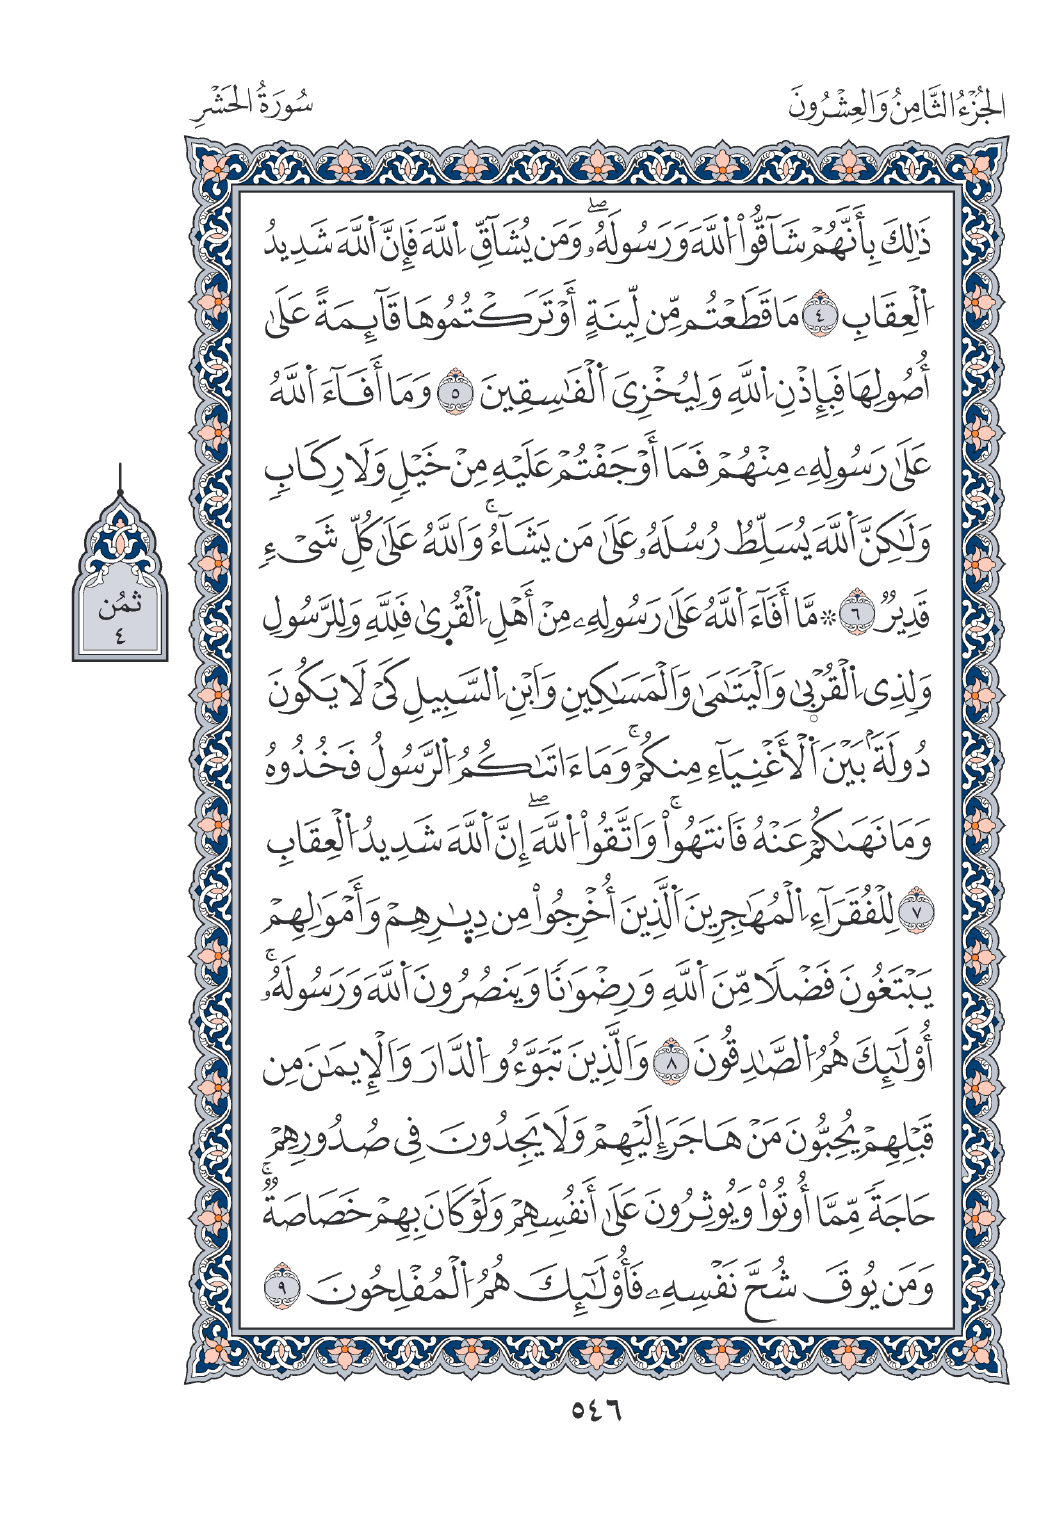 الجُزْءُ الثَّامِنُ وَالعِشْرُونَ
سُورَةُ الحَشْرِ
ذَٰلِكَ بِأَنَّهُمْ شَآقُّواْ اُ۬للَّهَ وَرَسُولَهُۥۖ وَمَن يُشَآقِّ اِ۬للَّهَ فَإِنَّ اَ۬للَّهَ شَدِيدُ
اُ۬لْعِقَابِ ٤ مَا قَطَعْتُم مِّن لِّينَةٍ أَوْ تَرَكْتُمُوهَا قَآئِمَةً عَلَىٰ
أُصُولِهَا فَبِإِذْنِ اِ۬للَّهِ وَلِيُخْزِىَ اَ۬لْفَٰسِقِينَ ٥ وَمَا أَفَآءَ اَ۬للَّهُ
عَلَىٰ رَسُولِهِۦ مِنْهُمْ فَمَا أَوْجَفْتُمْ عَلَيْهِ مِنْ خَيْلٍ وَلَا رِكَابٍ
وَلَٰكِنَّ اَ۬للَّهَ يُسَلِّطُ رُسُلَهُۥ عَلَىٰ مَن يَشَآءُۚ وَاَ۬للَّهُ عَلَىٰ كُلِّ شَىْءٍ
قَدِيرٌ ٦ ۞ مَّا أَفَآءَ اَ۬للَّهُ عَلَىٰ رَسُولِهِۦ مِنْ أَهْلِ اِ۬لْقُر۪ىٰ فَلِلَّهِ وَلِلرَّسُولِ
وَلِذِى اِ۬لْقُرْبىٰ وَاَ۬لْيَتَٰمَىٰ وَاَ۬لْمَسَٰكِينِ وَاَ۬بْنِ اِ۬لسَّبِيلِ كَىْ لَا يَكُونَ
دُولَةَۢ بَيْنَ اَ۬لْأَغْنِيَآءِ مِنكُمْۚ وَمَا ءَاتَىٰكُمُ اُ۬لرَّسُولُ فَخُذُوهُ
وَمَا نَهَىٰكُمْ عَنْهُ فَانتَهُواْۚ وَاَ۬تَّقُواْ اُ۬للَّهَۖ إِنَّ اَ۬للَّهَ شَدِيدُ اُ۬لْعِقَابِ
٧ لِلْفُقَرَآءِ اِ۬لْمُهَٰجِرِينَ اَ۬لَّذِينَ أُخْرِجُواْ مِن دِيٰ۪رِهِمْ وَأَمْوَٰلِهِمْ
يَبْتَغُونَ فَضْلًا مِّنَ اَ۬للَّهِ وَرِضْوَٰنًا وَيَنصُرُونَ اَ۬للَّهَ وَرَسُولَهُۥۚ
أُوْلَٰٓئِكَ هُمُ اُ۬لصَّٰدِقُونَ ٨ وَاَ۬لَّذِينَ تَبَوَّءُو اُ۬لدَّارَ وَاَ۬لْإِيمَٰنَ مِن
قَبْلِهِمْ يُحِبُّونَ مَنْ هَاجَرَ إِلَيْهِمْ وَلَا يَجِدُونَ فِى صُدُورِهِمْ
حَاجَةً مِّمَّا أُوتُواْ وَيُوثِرُونَ عَلَىٰ أَنفُسِهِمْ وَلَوْ كَانَ بِهِمْ خَصَاصَةٌۚ
وَمَن يُوقَ شُحَّ نَفْسِهِۦ فَأُوْلَٰٓئِكَ هُمُ اُ۬لْمُفْلِحُونَ ٩
ثُمُن
٤
٥٤٦